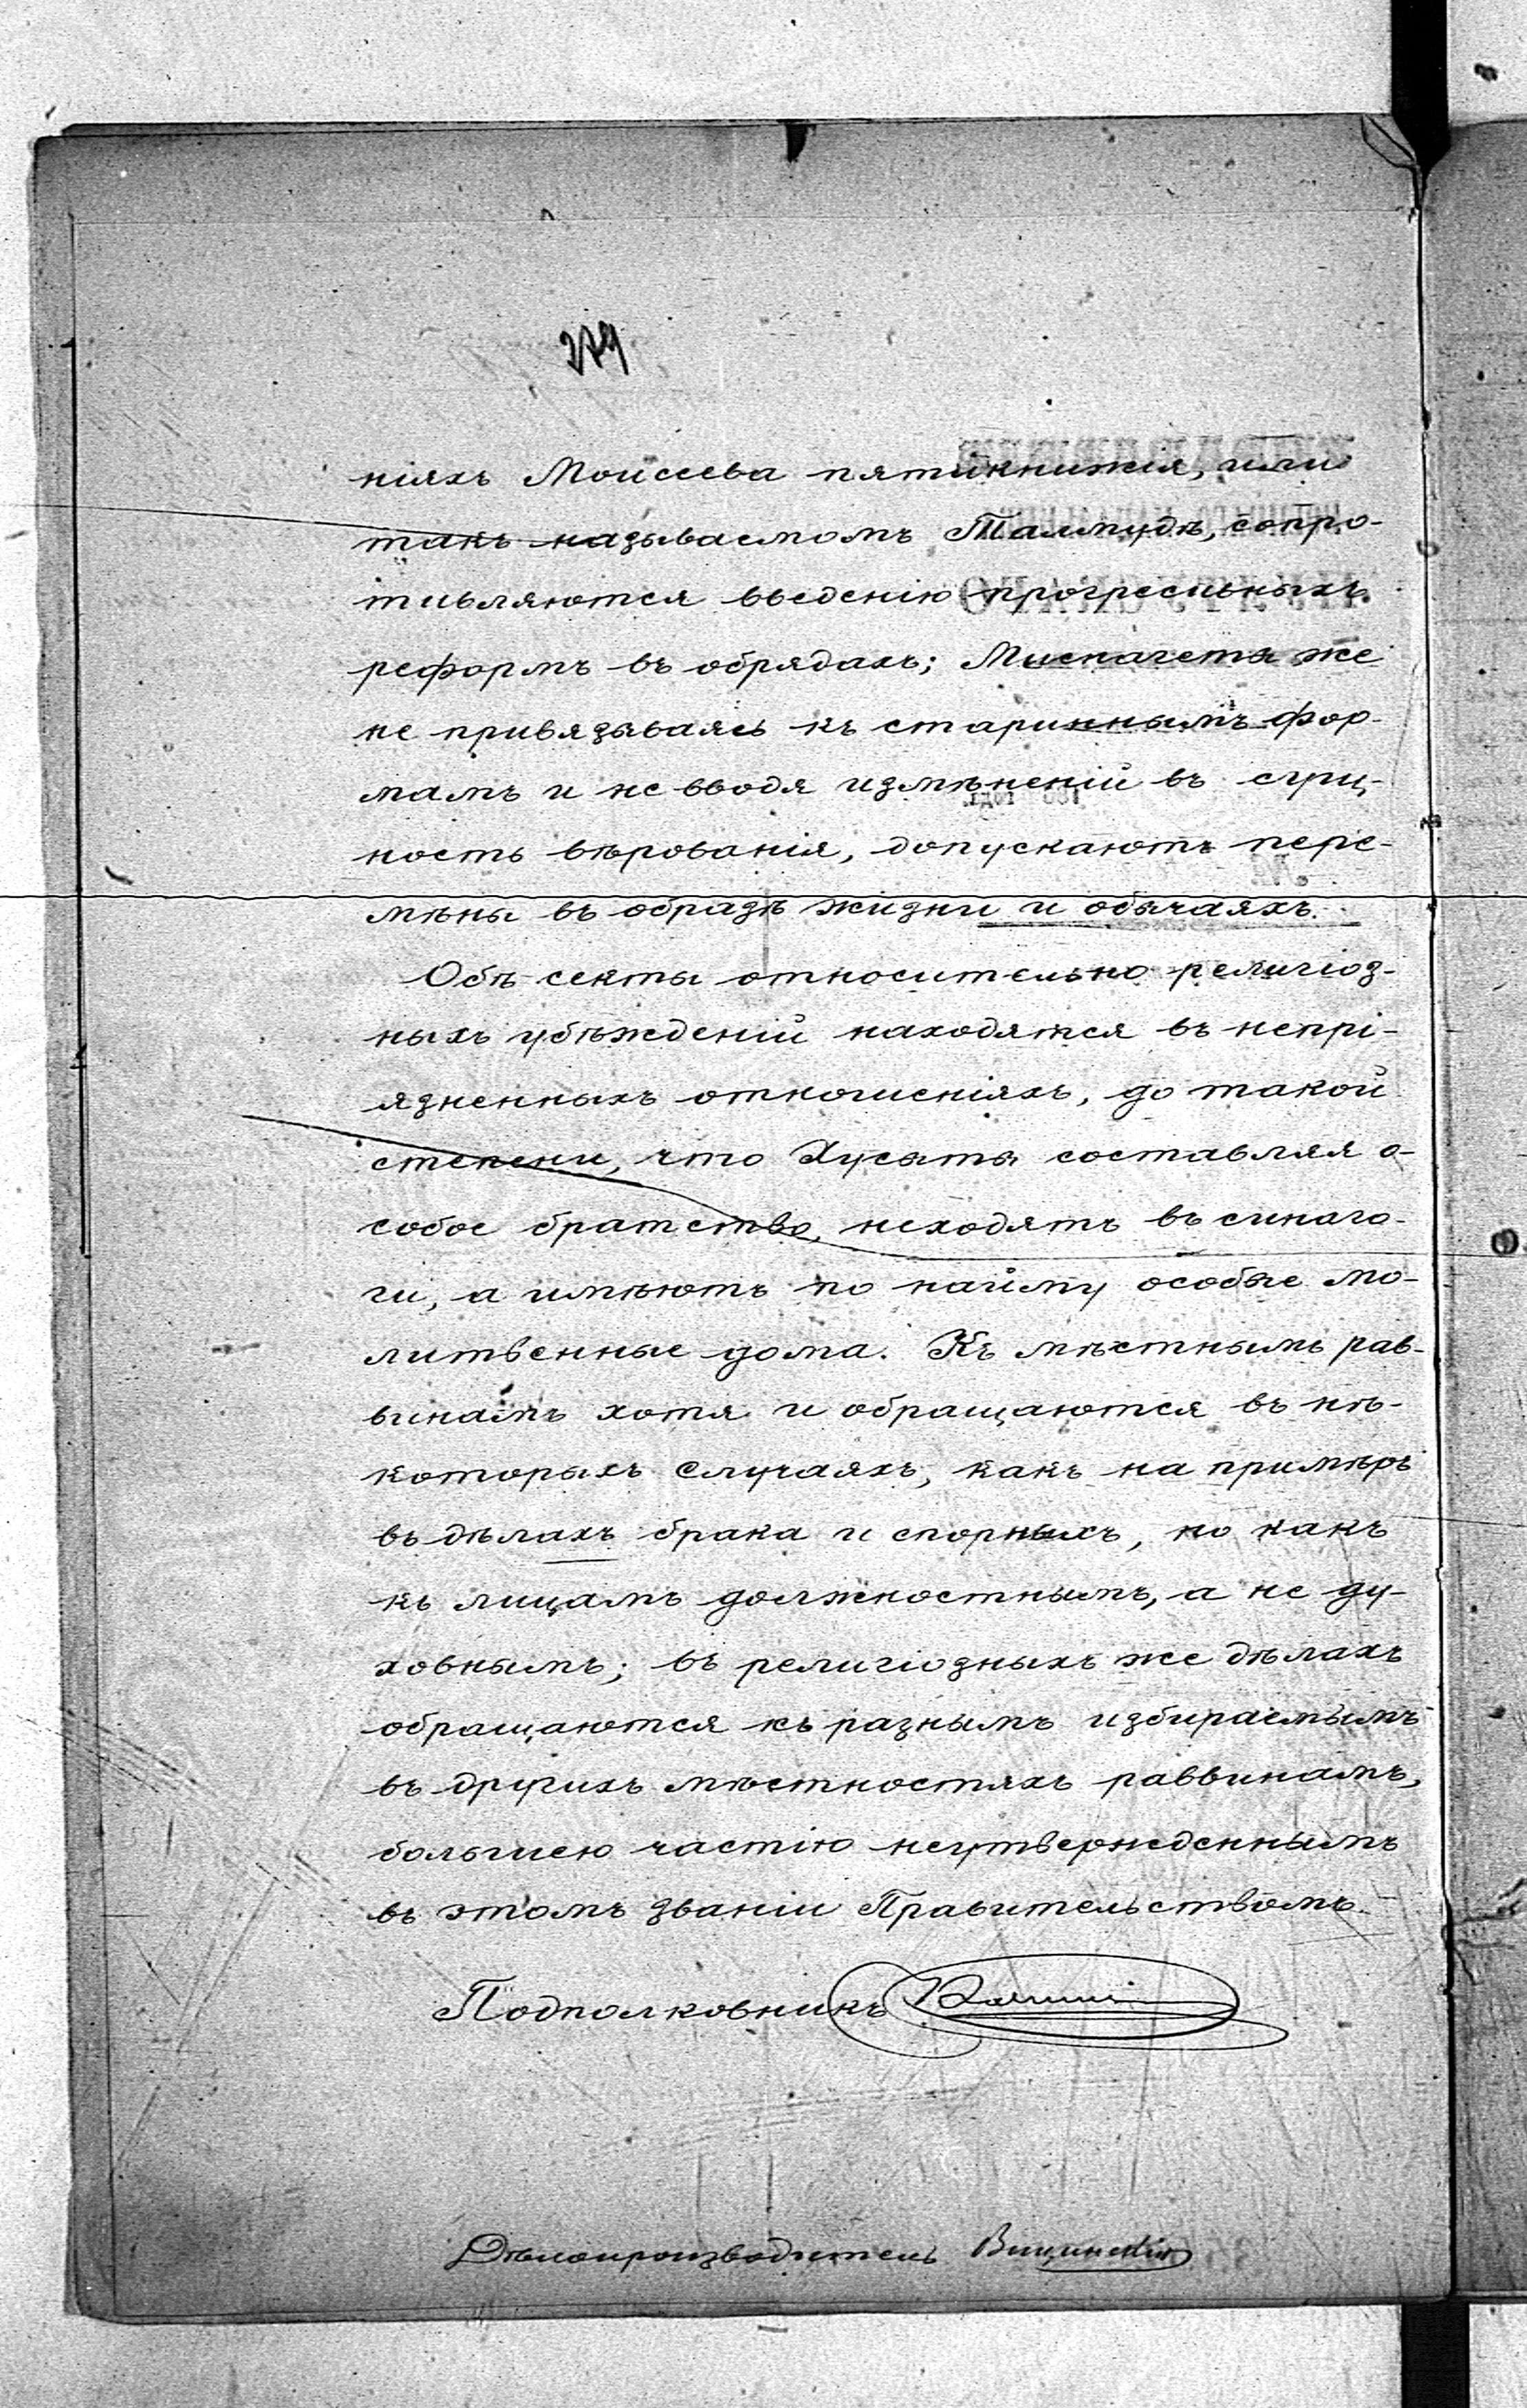 279
ніяхъ Моисеева пятикнижія, или
такъ называемомъ Талмудѣ, сопро-
тивляются введенію прогресивныхъ
реформъ въ обрядахъ; Миснагеты же
не привязываясь къ стариннымъ фор-
мамъ и не вводя измѣненій въ сущ-
ность вѣрованія, допускаютъ пере-
мѣны въ образѣ жизни и обычаяхъ.
Обѣ секты относительно религіоз-
ныхъ убѣжденій находятся въ непрі-
язненныхъ отношеніяхъ, до такой
степени, что Хусыты составляя о-
собое братство, неходятъ въ синаго-
ги, а имѣютъ по найму особые мо-
литвенные дома. Къ мѣстнымъ рав-
винамъ хотя и обращаются въ нѣ-
которыхъ случаяхъ, какъ на примѣръ
въ дѣлахъ брака и спорныхъ, но какъ
къ лицамъ должностнымъ, а не ду-
ховнымъ; въ религіозныхъ же дѣлахъ
обращаются къ разнымъ избираемымъ
въ другихъ мѣстностяхъ раввинамъ,
большею частію неутвержденнымъ
въ этомъ званіи Правительствомъ.
Подполковникъ
Дѣлопроизводитель